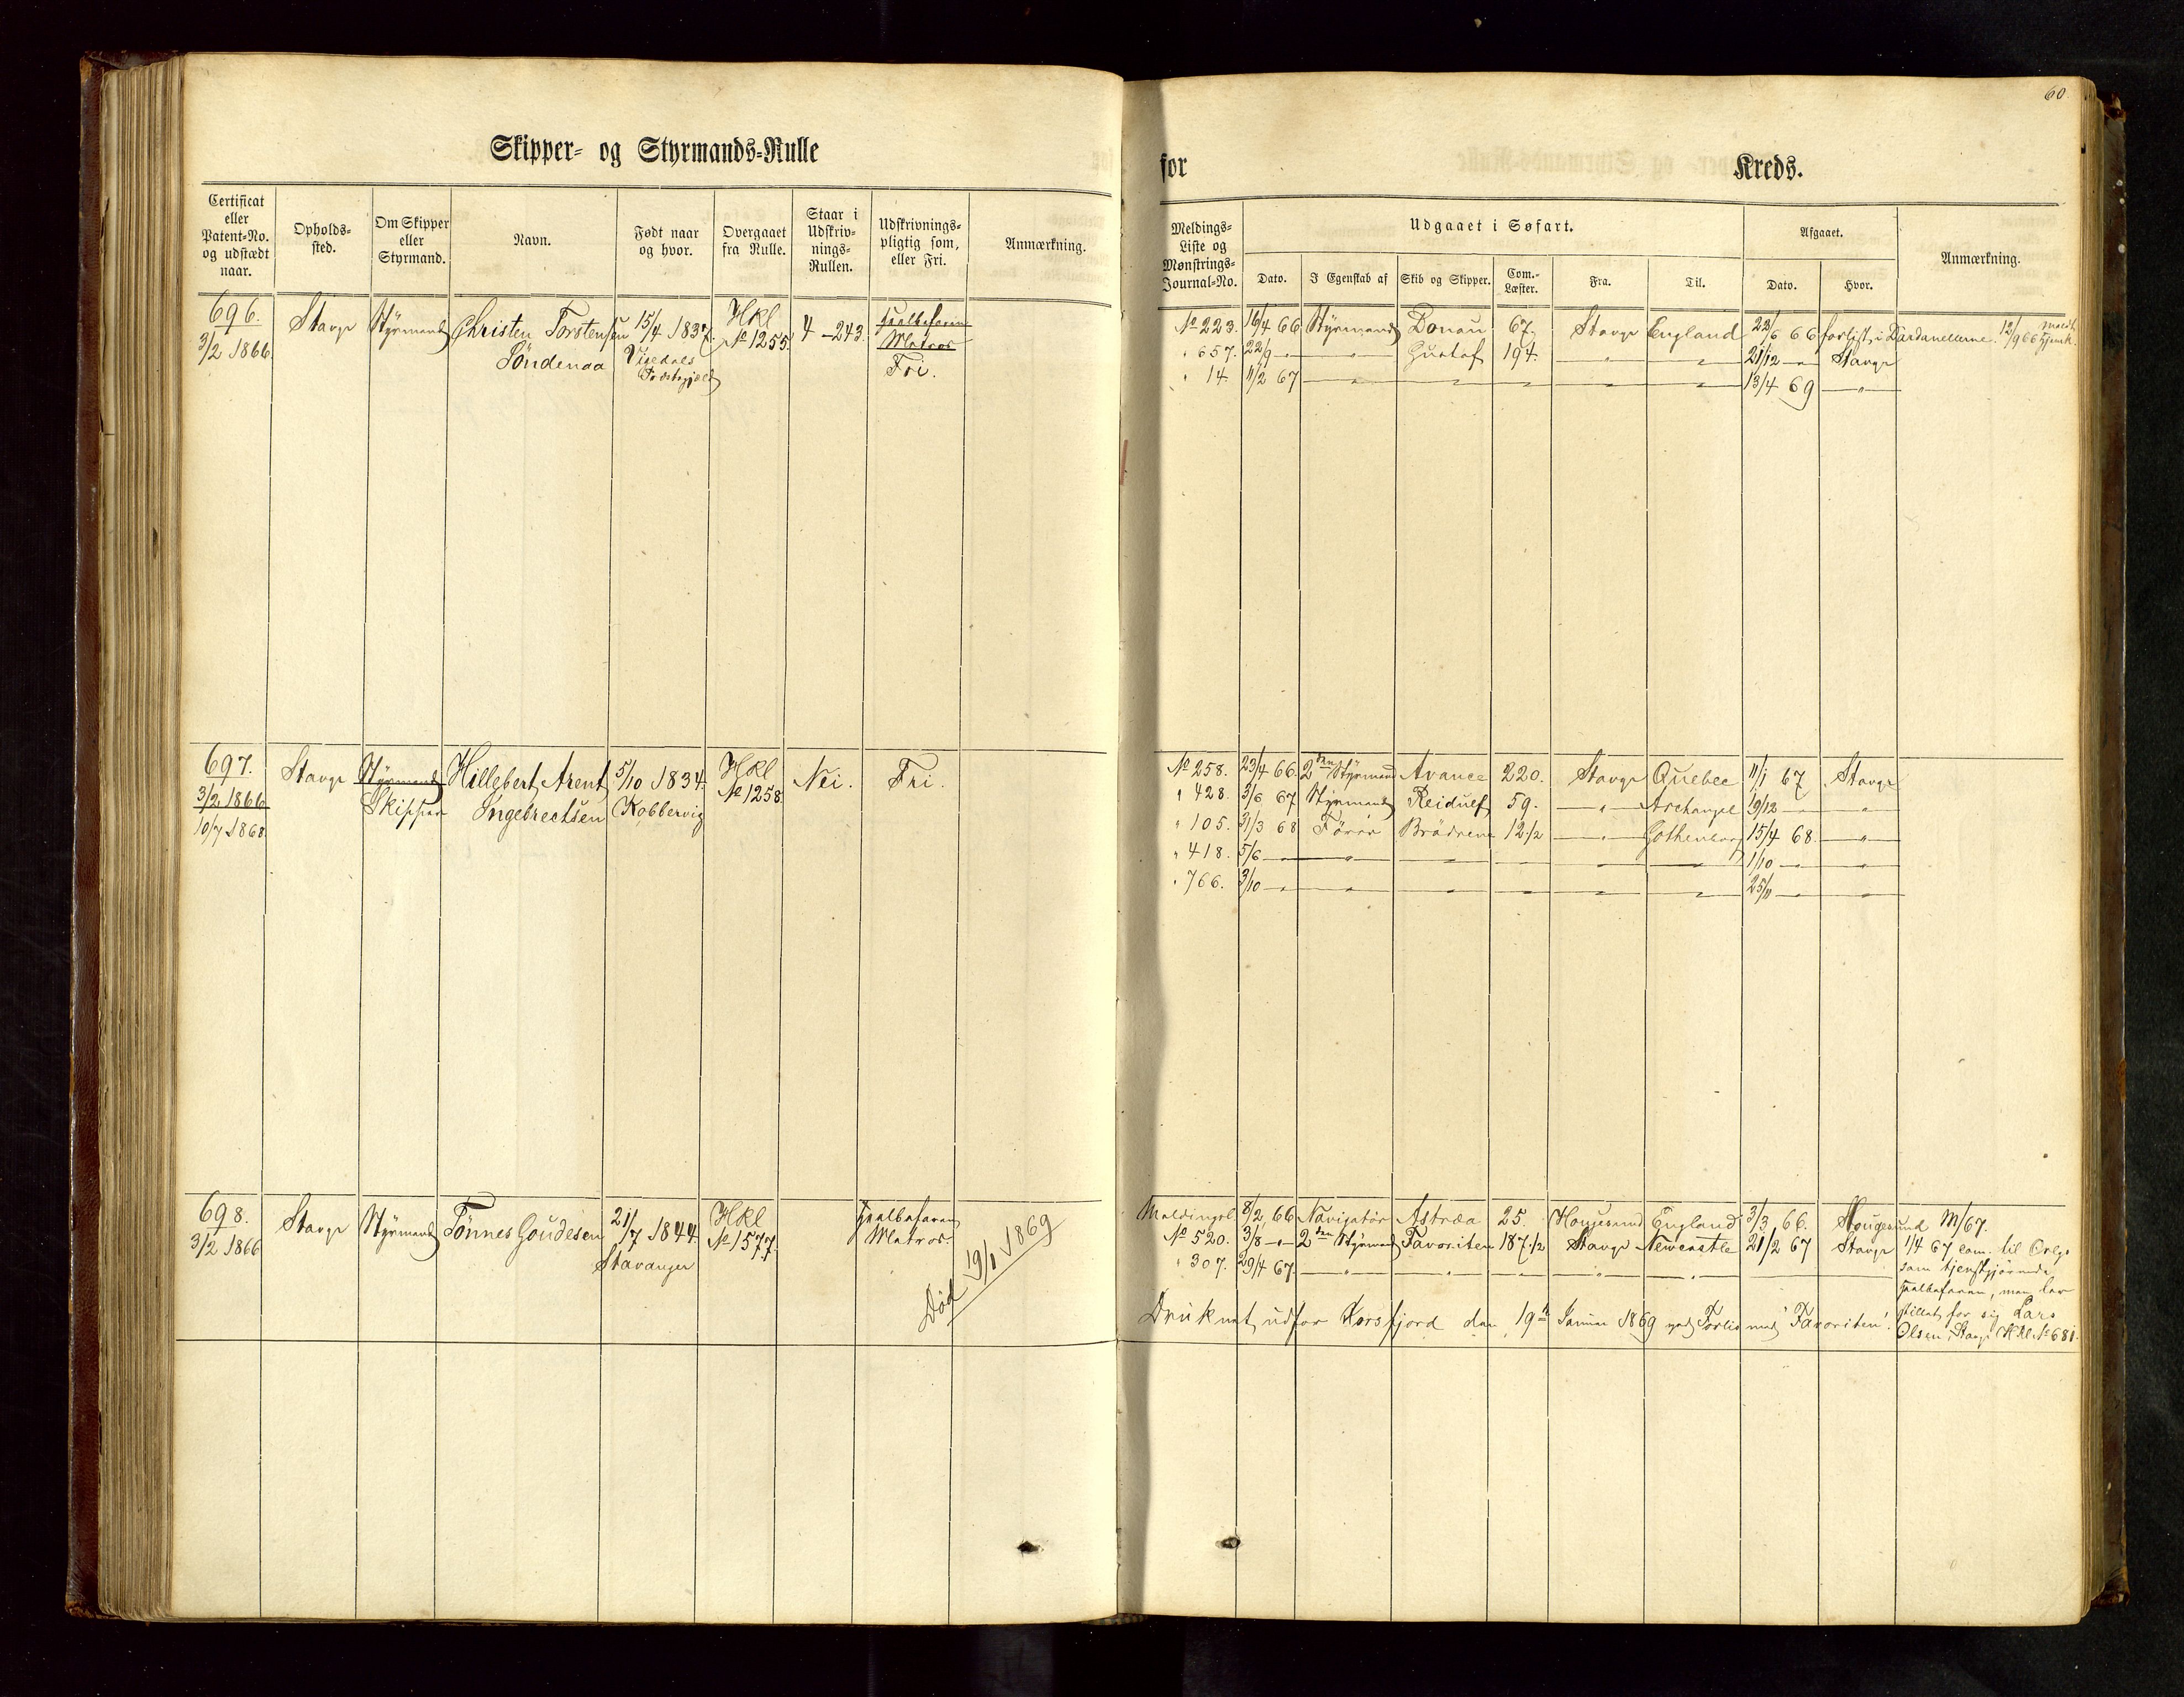 60.
Skipper- og Styrmands-Rulle
for Kreds.
Certificat eller Patent-No. og udstædt naar.
Opholds-sted.
Om Skipper eller Styrmand.
Navn.
Født naar og hvor.
Overgaaet fra Rulle.
Staar i Udskriv-nings-Rullen.
Udskrivnings-pligtig som, eller Fri.
Anmærkning.
Meldings-Liste og Mønstrings-Journal-No.
Udgaaet i Søfart.
Dato. I Egenskab af Skib og Skipper. Com.-Læster. Fra. Til.
Afgaaet.
Dato. Hvor.
Anmærkning.
696. Stavgr Styrmand Christen Torstensen 15/4 1837. Hkl 4-243. Halvbefaren
3/2 1866. Söndenaa Vigedals No 1255. Matros
Præstegjeld Fri.
No 223. 16/4 66 Styrmand Donau 67. Stavgr England 23/6 66 forlist i Dardanellerne. 12/9 66
" 657. 22/9 -"- -"- Gustaf 194. -"- -"- 21/12 -"- Stavgr
" 14. 11/2 67 -"- -"- -"- -"- -"- 13/4 69 -"-
697. Stavgr Styrmand Hillebert Arent 5/10 1834. Hkl Nei. Fri.
3/2 1866 Skipper Ingebrechtsen Kobbervig No 1258
10/7 1868
No 258. 23/4 66. 2den Styrmand Avance 220. Stavgr Quebec 11/1 67 Stavgr
" 428. 3/6 67 Styrmand Reidulf 59. -"- Archangel 19/12 -"- -"-
" 105. 31/3 68 Fører Brödrene 12 1/2 -"- Gothenborg 15/4 68. -"-
" 418. 5/6 -"- -"- -"- -"- -"- -"- 1/10 -"- -"-
" 766. 3/10 -"- -"- -"- -"- -"- -"- 25/11 -"- -"-
698. Stavgr Styrmand Tönnes Goudesen 21/7 1844. Hkl Halvbefaren
3/2 1866 Stavanger No 1577. Matros.
Död 19/1 1869
Meldingsl. 8/2 66 Navigatör Astræa 25. Hougesund England 3/3 66. Hougesund M/67.
No 520. 3/8 -"- 2den Styrmand Favoriten 187 1/2 Stavgr Newcastle 21/2 67 Stavgr 1/4 67 com. til Orlgs
" 307. 29/4 67. -"- -"- -"- -"- -"- som tjenstgjørende
Halvbefaren, men har
Druknet udfor Korsfjord den 19de Januar 1869 ved Forlis med "Favoriten". stillet for sig Lars
Olsen, Stavgr Hkl No 681.